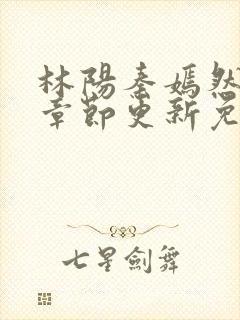 林陽秦嫣然
章節更新免
七星劍舞